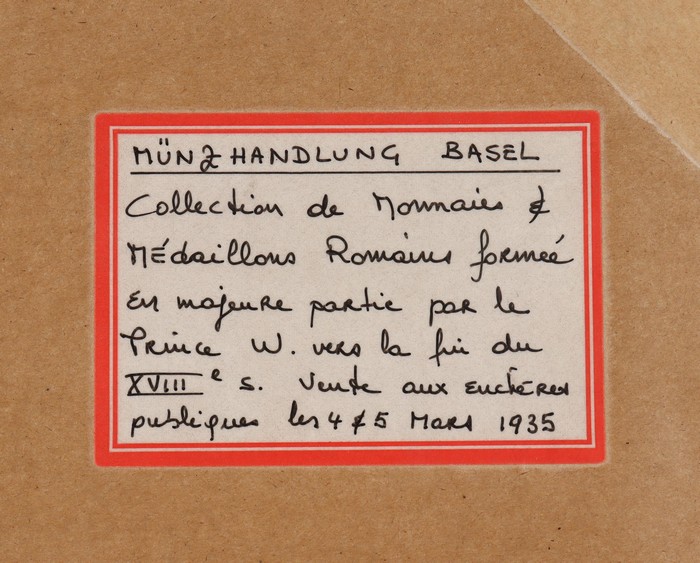 MÜNZHANDLUNG BASEL
Collection de Monnaies &
MÉdaillons Romains formeé
en majeure partie par le
Prince W. vers la fin du
XVIIIe s. Vente aux enchères
publiques les 4 & 5 Mars 1935